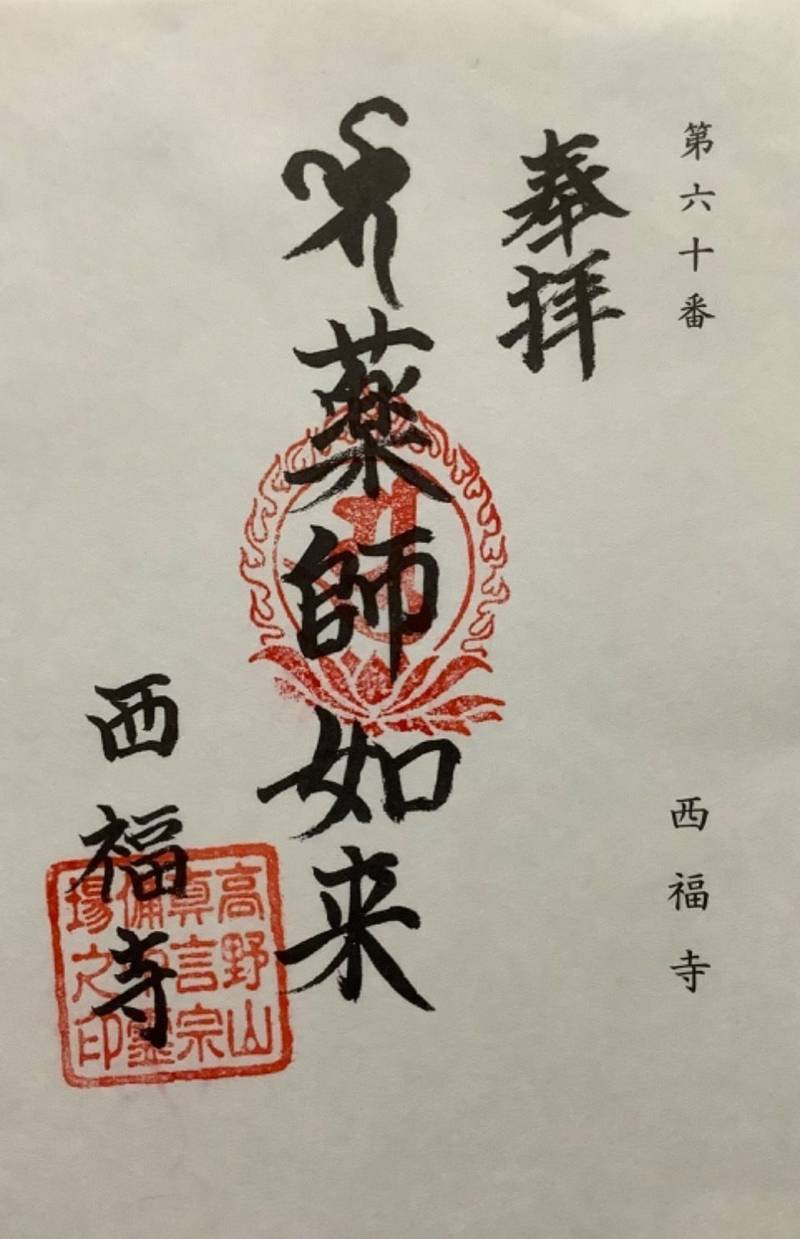 第六十番
西福寺
奉拝
薬師如来
西福寺
高野山
真言宗
備中霊
場之印